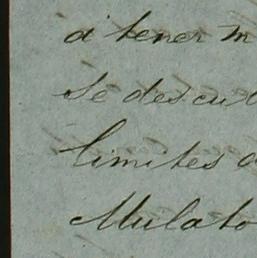 á tener m
se descut
limites d
Mulato